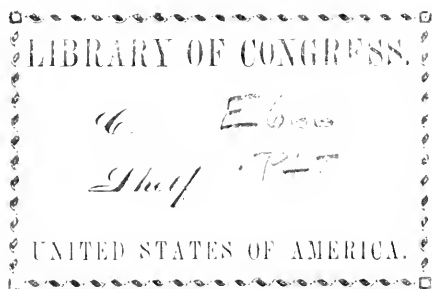 LIBRARY OF CONGRESS.
C. E600
Shelf
UNITED STATES OF AMERICA.